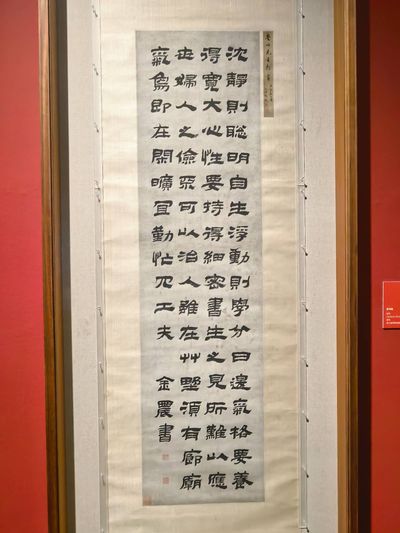 沈靜則聰明自生浮動則學分日邊氣格要養
得寬大心性要持得細密書生之見所難以應
世婦人之儉奚可以治人雖在艸野須有廊廟
氣象即在閒曠宜勤忙冗工夫 金農書